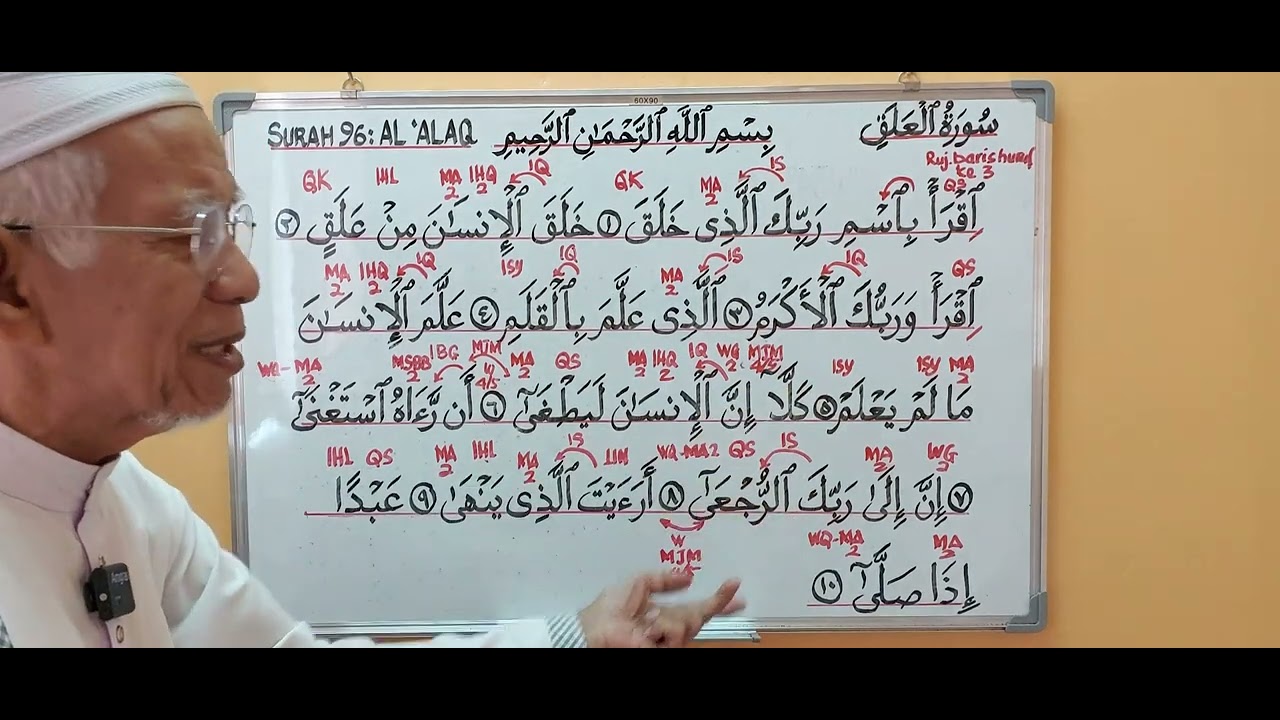 60X90
SURAH 96: AL 'ALAQ بِسْمِ ٱللَّهِ ٱلرَّحْمَـٰنِ ٱلرَّحِيمِ سُورَةُ ٱلْعَلَقِ
Ruj. baris huruf
ke 3
QK IHL MA 2 IHQ 2 IQ QK MA 2 IS QS
ٱقْرَأْ بِٱسْمِ رَبِّكَ ٱلَّذِى خَلَقَ ١ خَلَقَ ٱلْإِنسَـٰنَ مِنْ عَلَقٍ ٢
MA 2 IHQ 2 IQ ISY IQ MA 2 IS IQ QS
ٱقْرَأْ وَرَبُّكَ ٱلْأَكْرَمُ ٣ ٱلَّذِى عَلَّمَ بِٱلْقَلَمِ ٤ عَلَّمَ ٱلْإِنسَـٰنَ
WQ-MA 2 MSBB 2 IBG MJM 4/5 MA 2 QS MA 2 IHQ 2 IQ WG 2 MJM 4/5 ISY ISY MA 2
مَا لَمْ يَعْلَمْ ٥ كَلَّآ إِنَّ ٱلْإِنسَـٰنَ لَيَطْغَىٰٓ ٦ أَن رَّءَاهُ ٱسْتَغْنَىٰٓ
IHL QS MA 2 IHL MA 2 IS LIN WQ-MA2 QS IS MA 2 WG 2
٧ إِنَّ إِلَىٰ رَبِّكَ ٱلرُّجْعَىٰٓ ٨ أَرَءَيْتَ ٱلَّذِى يَنْهَىٰ ٩ عَبْدًا
W
MJM
WQ-MA 2 MA 2
إِذَا صَلَّىٰٓ ١٠